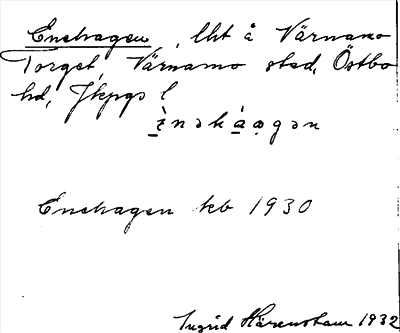 Enehagen, lht å Värnamo
Torget, Värnamo stad, Östbo
hd, Jkpgs l
Enehagen kb 1930
Ingrid Härenstam 1932